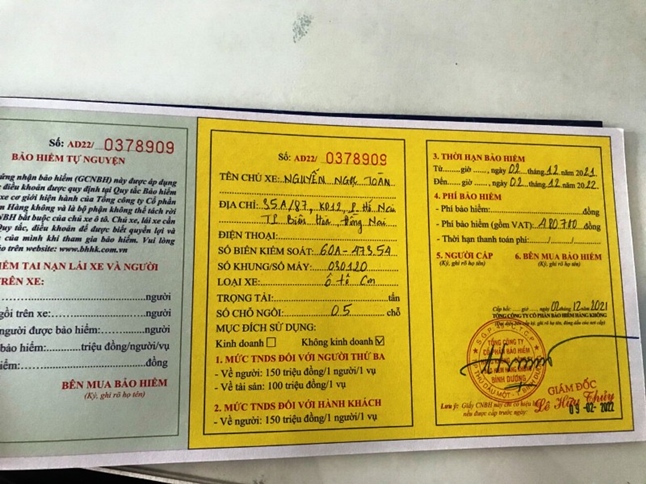 Số: AD22/ 0378909
BẢO HIỂM TỰ NGUYỆN
ứng nhận bảo hiểm (GCNBH) này được áp dụng
điều khoản được quy định tại Quy tắc Bảo hiểm
xe cơ giới hiện hành của Tổng công ty Cổ phần
m Hàng không và là bộ phận không thể tách rời
NBH bắt buộc của chủ xe ô tô. Chủ xe, lái xe cần
Quy tắc, điều khoản để được biết quyền lợi và
của mình khi tham gia bảo hiểm. Vui lòng
ảo trên website: www.bhhk.com.vn
IỂM TAI NẠN LÁI XE VÀ NGƯỜI
TRÊN XE:
người
gồi trên xe: người
người được bảo hiểm: người
bảo hiểm: triệu đồng/người/vụ
iểm: đồng
BÊN MUA BẢO HIỂM
(Ký, ghi rõ họ tên)
Số: AD22/ 0378909
TÊN CHỦ XE: NGUYỄN NGỌC TOÀN
ĐỊA CHỈ: 35A/87, KP12, P. Hố Nai
TP Biên Hòa, Đồng Nai
ĐIỆN THOẠI:
SỐ BIỂN KIỂM SOÁT: 60A-473.54
SỐ KHUNG/SỐ MÁY: 030120
LOẠI XE: Ô tô Con
TRỌNG TẢI: tấn
SỐ CHỖ NGỒI: 05 chỗ
MỤC ĐÍCH SỬ DỤNG:
Kinh doanh Không kinh doanh
1. MỨC TNDS ĐỐI VỚI NGƯỜI THỨ BA
- Về người: 150 triệu đồng/1 người/1 vụ
- Về tài sản: 100 triệu đồng/1 vụ
2. MỨC TNDS ĐỐI VỚI HÀNH KHÁCH
- Về người: 150 triệu đồng/1 người/1 vụ
3. THỜI HẠN BẢO HIỂM
Từ: giờ , ngày 02 tháng 12 năm 2021
Đến: giờ , ngày 02 tháng 12 năm 2022
4. PHÍ BẢO HIỂM
- Phí bảo hiểm: đồng
- Phí bảo hiểm (gồm VAT): 480.700 đồng
- Thời hạn thanh toán phí: / /
5. NGƯỜI CẤP 6. BÊN MUA BẢO HIỂM
(Ký, ghi rõ họ tên)
Cấp hồi: giờ, ngày 02/12/2021
TỔNG CÔNG TY CỔ PHẦN BẢO HIỂM HÀNG KHÔNG
TỔNG CÔNG TY
CỔ PHẦN BẢO HIỂM
BÌNH DƯƠNG
GIÁM ĐỐC
Lê Hữu Thủy
09-02-2022
Lưu ý: Giấy CNBH này chỉ có hiệu lực
nếu được cấp trước ngày: